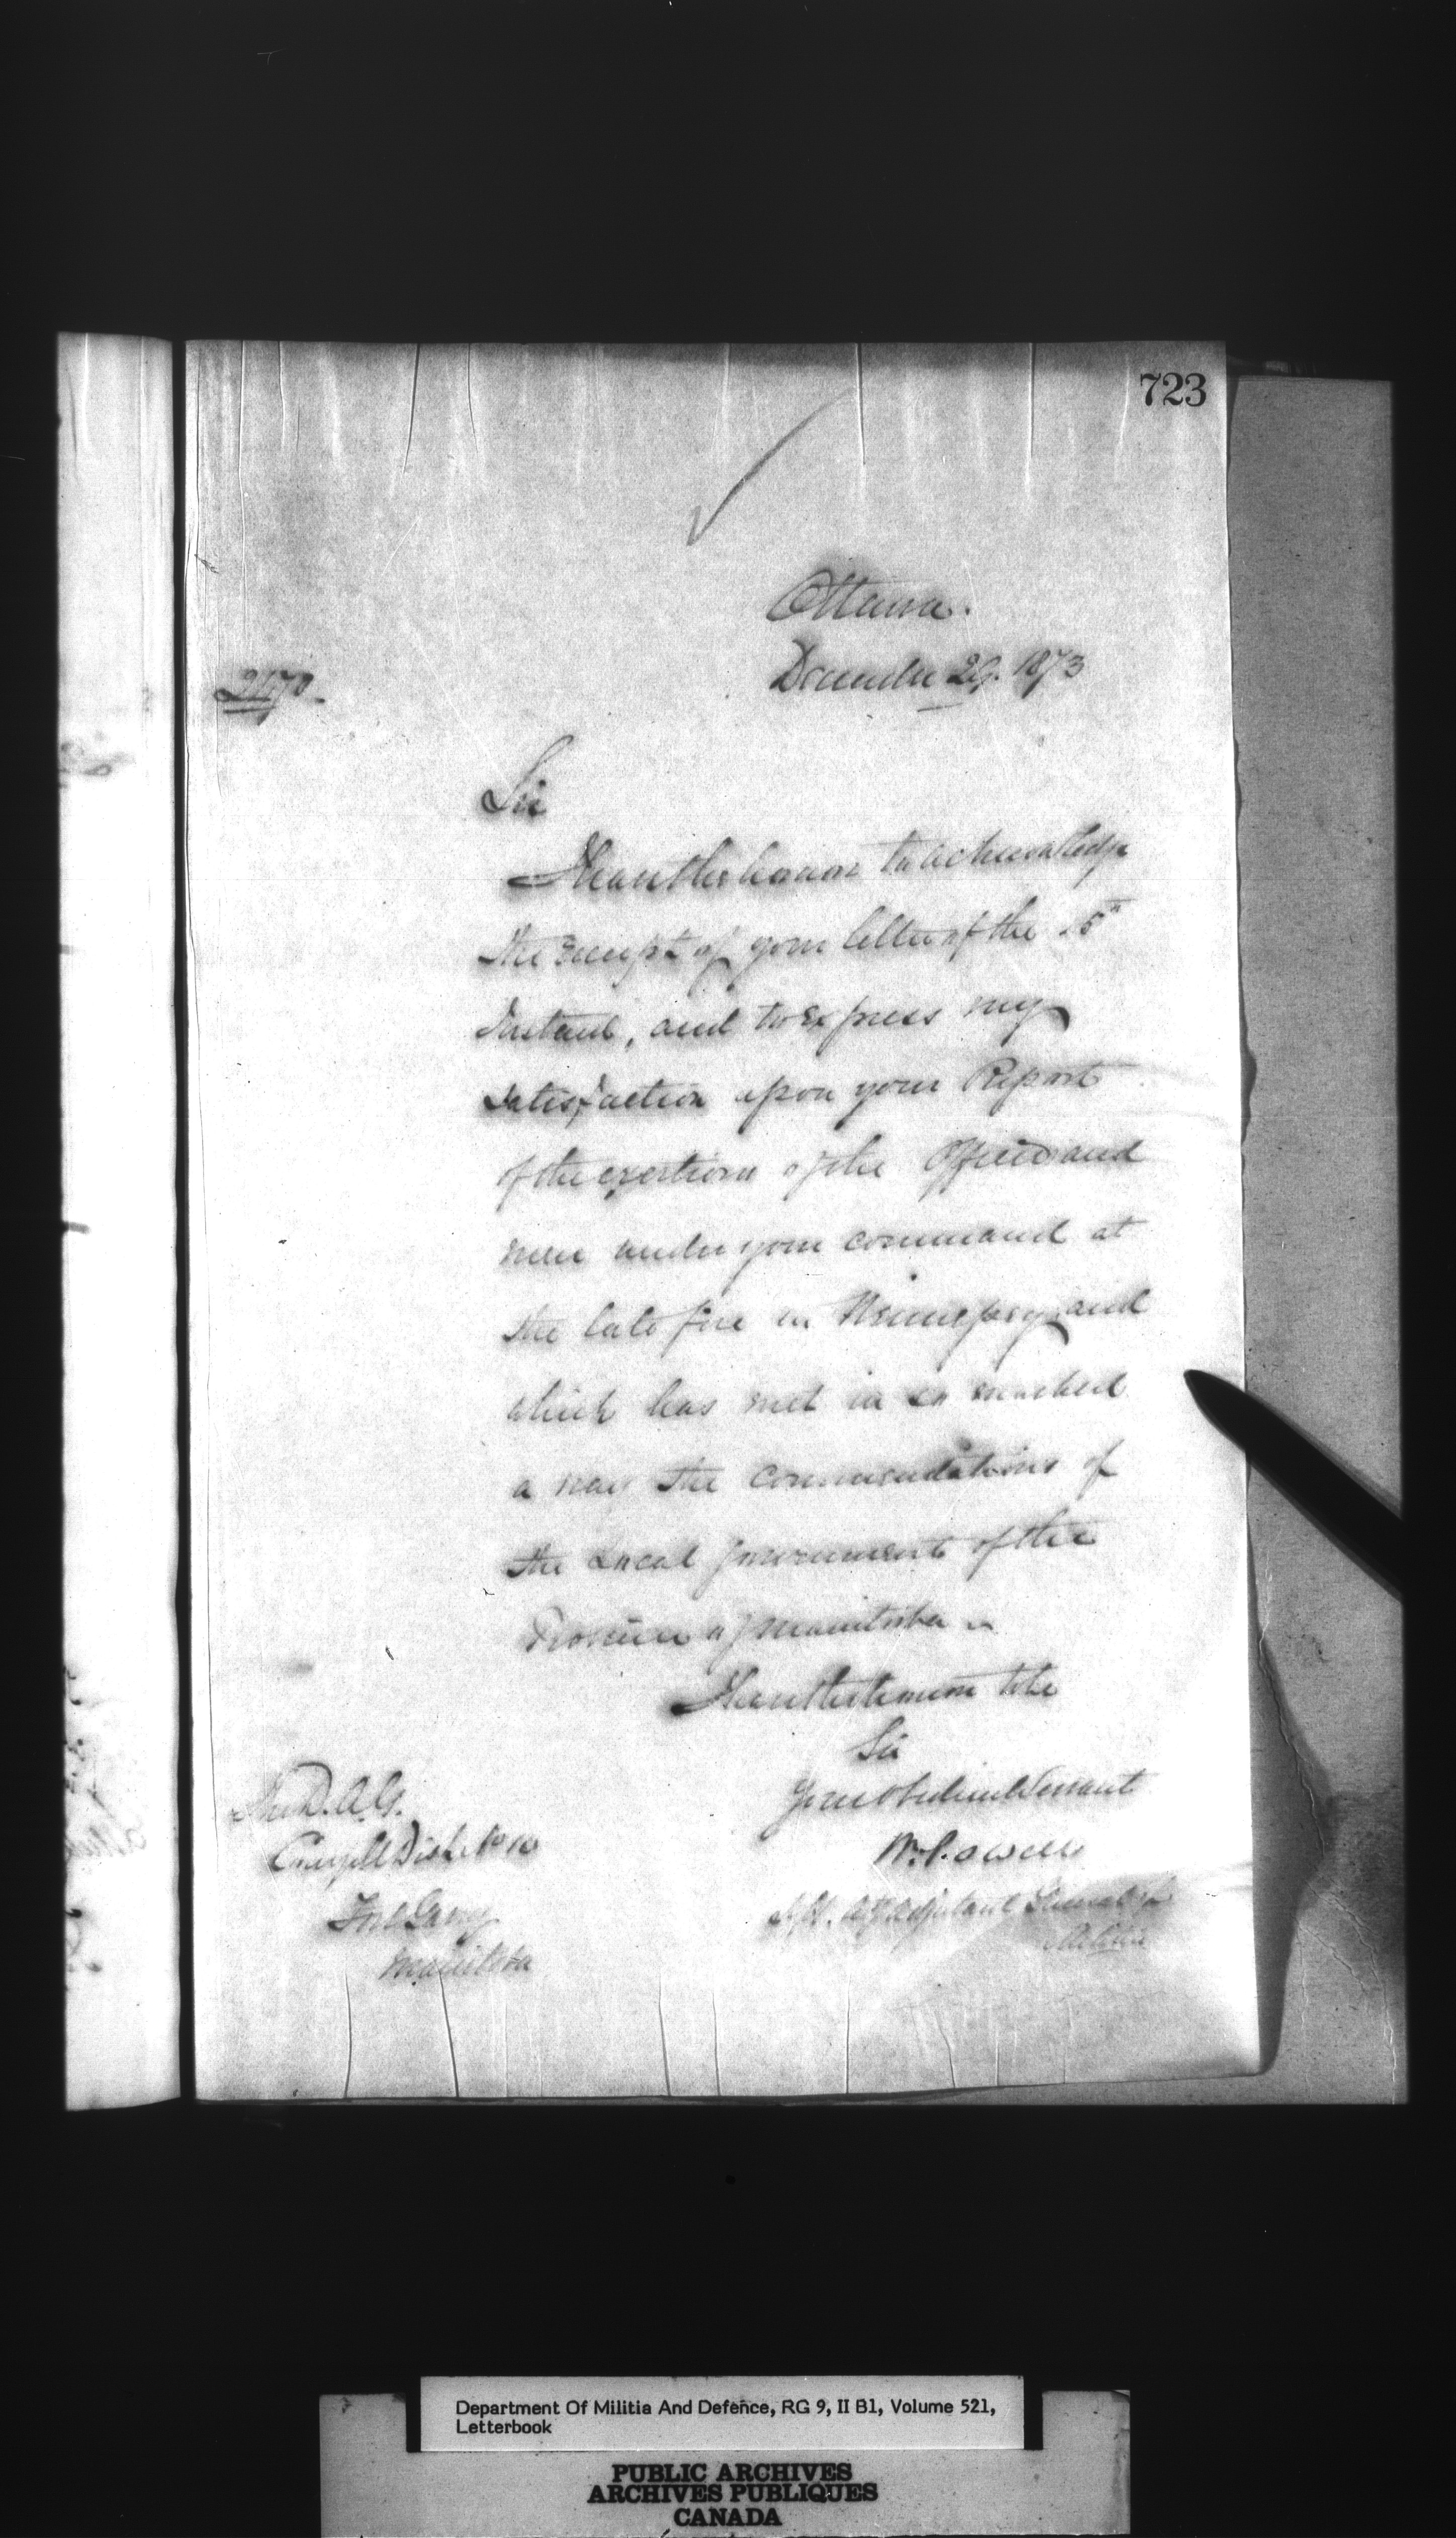 723
Ottawa.
December 29. 1873
Sir
I have the honor to acknowledge
the receipt of your letter of the 15th
Instant, and to express my
satisfaction upon your Report
of the exertions of the Officers and
men under your command at
the late fire in Winnipeg, and
which has met in so marked
a way the commendations of
the Local Government of the
Province of Manitoba
I have the honor to be
Sir
Your obedient Servant
W. Powell
Adjutant General of
Militia
The D.A.G.
Comg Mil Dist No 10
Fort Garry
Manitoba
Department Of Militia And Defence, RG 9, II B1, Volume 521,
Letterbook
PUBLIC ARCHIVES
ARCHIVES PUBLIQUES
CANADA